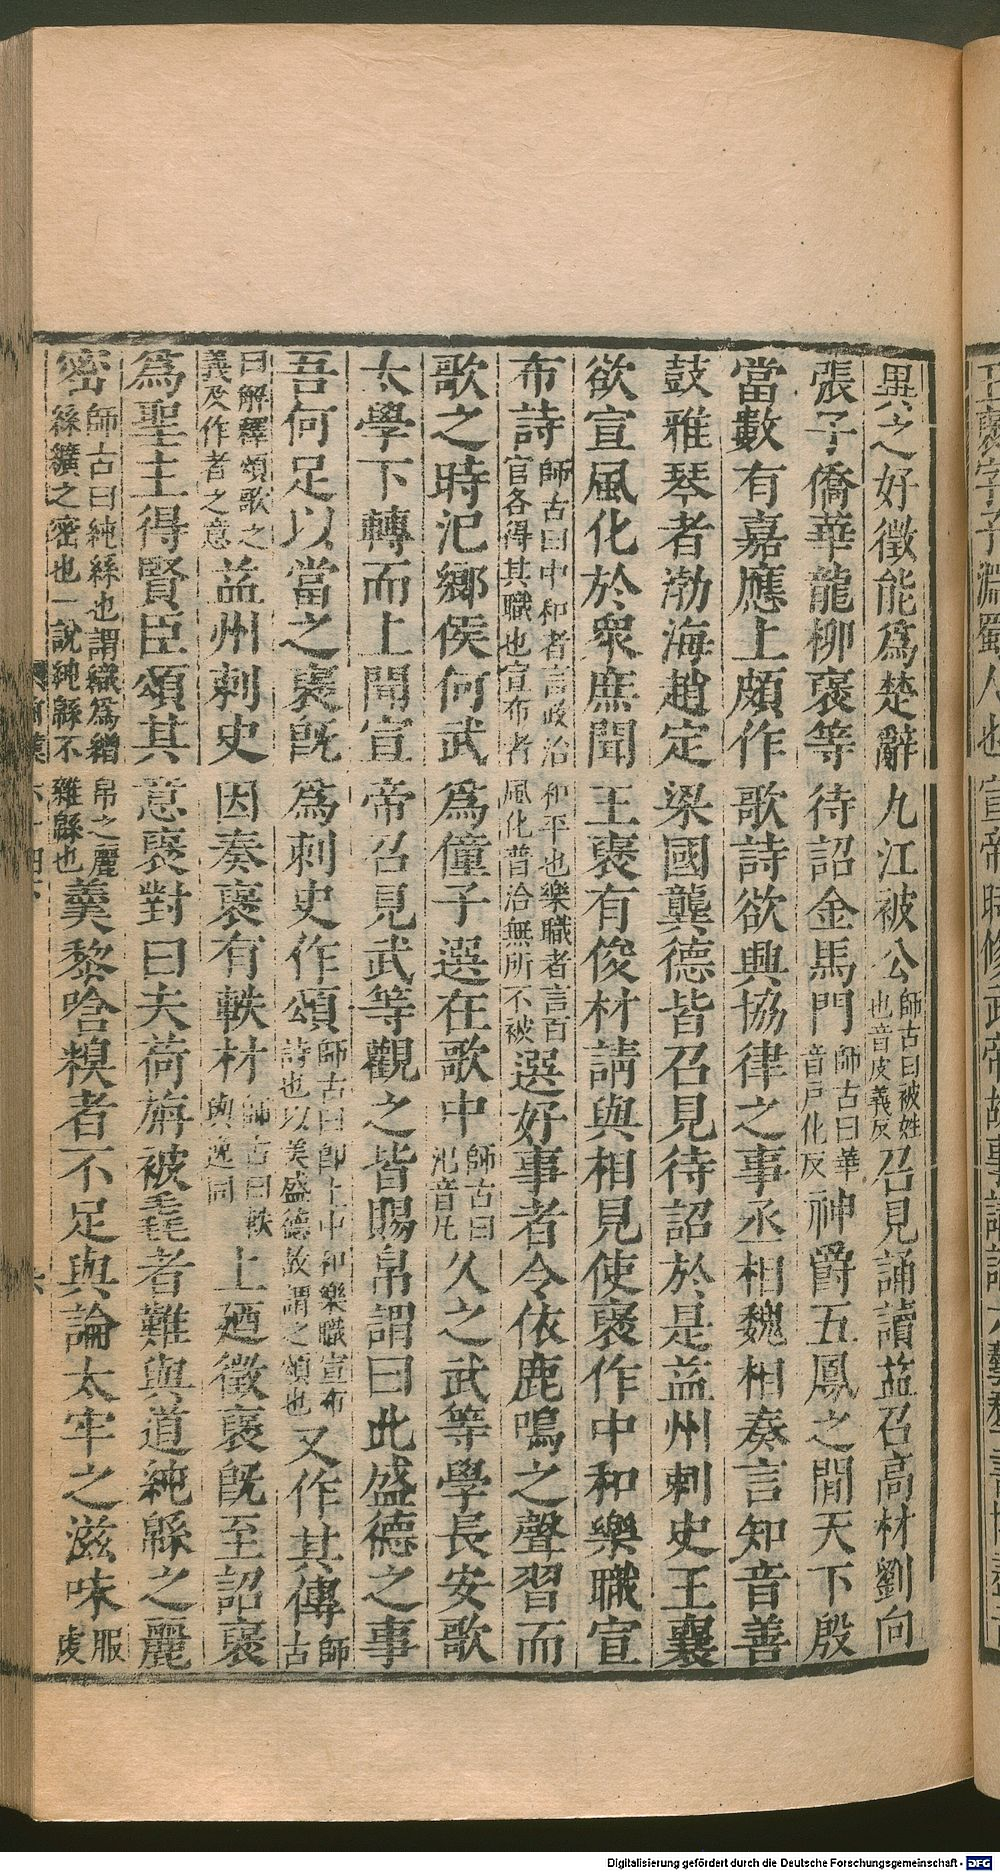 異公之好徵能為楚辭九江被公師古曰被姓也音皮義反召見誦讀益召高材劉向
張子僑華龍柳褒等待詔金馬門師古曰華音戶化反神爵五鳳之間天下殷
當數有嘉應上頗作歌詩欲興協律之事丞相魏相奏言知音善
鼓雅琴者渤海趙定梁國龔德皆召見待詔於是益州刺史王襄
欲宣風化於眾庶聞王褒有俊材請與相見使褒作中和樂職宣
布詩師古曰中和者言政治和平也樂職者言百官各得其職也宣布者風化普洽無所不被選好事者令依鹿鳴之聲習而
歌之時氾鄉侯何武為僮子選在歌中師古曰氾音凡久之武等學長安歌
太學下轉而上聞宣帝召見武等觀之皆賜帛謂曰此盛德之事
吾何足以當之褒既為刺史作頌師古曰即上中和樂職宣布詩也以美盛德故謂之頌也又作其傳師古
曰解釋頌歌之義及作者之意益州刺史因奏褒有軼材師古曰軼與逸同上廼徵褒既至詔褒
為聖主得賢臣頌其意褒對曰夫荷旃被毳者難與道純緜之麗
密師古曰純絲也謂織為繒帛之麗絲纊之密也一說純緜不雜緜也羹黎唅糗者不足與論太牢之滋味服虔
王褒字子淵蜀人也宣帝時修武帝故事講論六藝群書
Digitalisierung gefördert durch die Deutsche Forschungsgemeinschaft - DFG